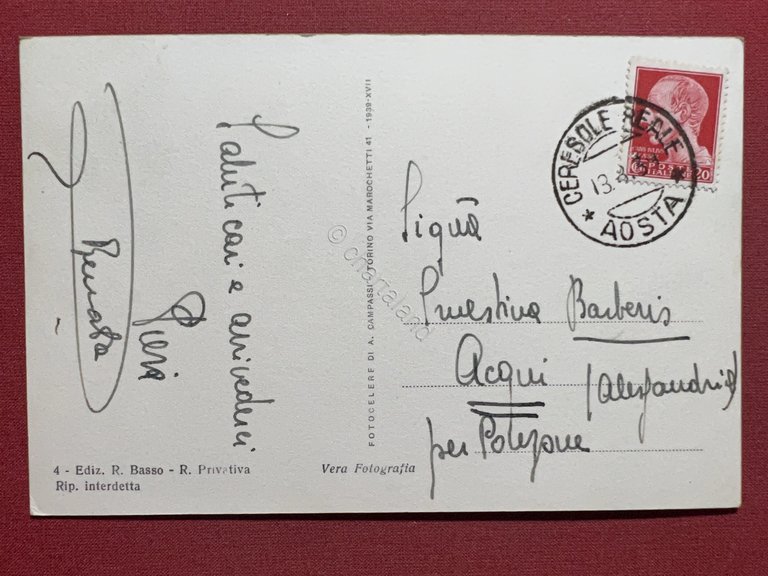 Saluti cari e arrivederci
Piera
Renata
4 - Ediz. R. Basso - R. Privativa
Rip. interdetta
Vera Fotografia
FOTOCELERE DI A. CAMPASSI - TORINO VIA MAROCHETTI 41 - 1939-XVII
© chartaland
CERESOLE REALE
13.8
* AOSTA *
POSTE
ITALIANE
20
Sigra
Ernestina Barberis
Acqui (Alessandria)
per Polezone